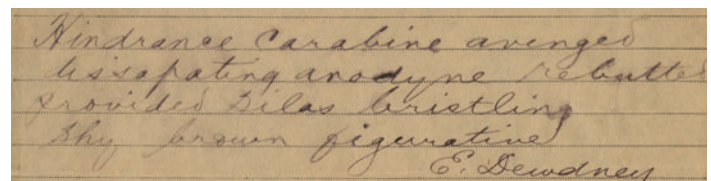 Hindrance Carabine avenged
dissapating anodyne rebutted
provided Silas bristling
Shy brown figurative
E. Dewdney